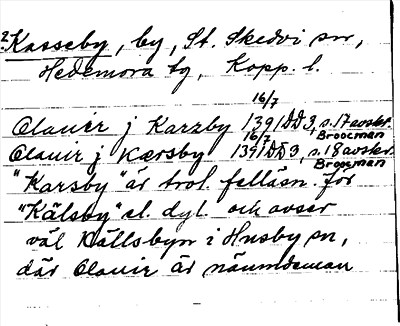 ?Kasseby, by, St. Skedvi sn,
Hedemora tg, Kopp. l.
Olauer j Karzby 16/7 1391 DD 3, s. 17 avskr. Brooeman
Olauir j Kærsby 16/7 1391 DD 3, s. 18 avskr. Brooeman
"Karsby" är trol. felläsn. för
"Kälsby" el. dyl. och avser
väl Källsbyn i Husby sn,
där Olauir är nämndeman